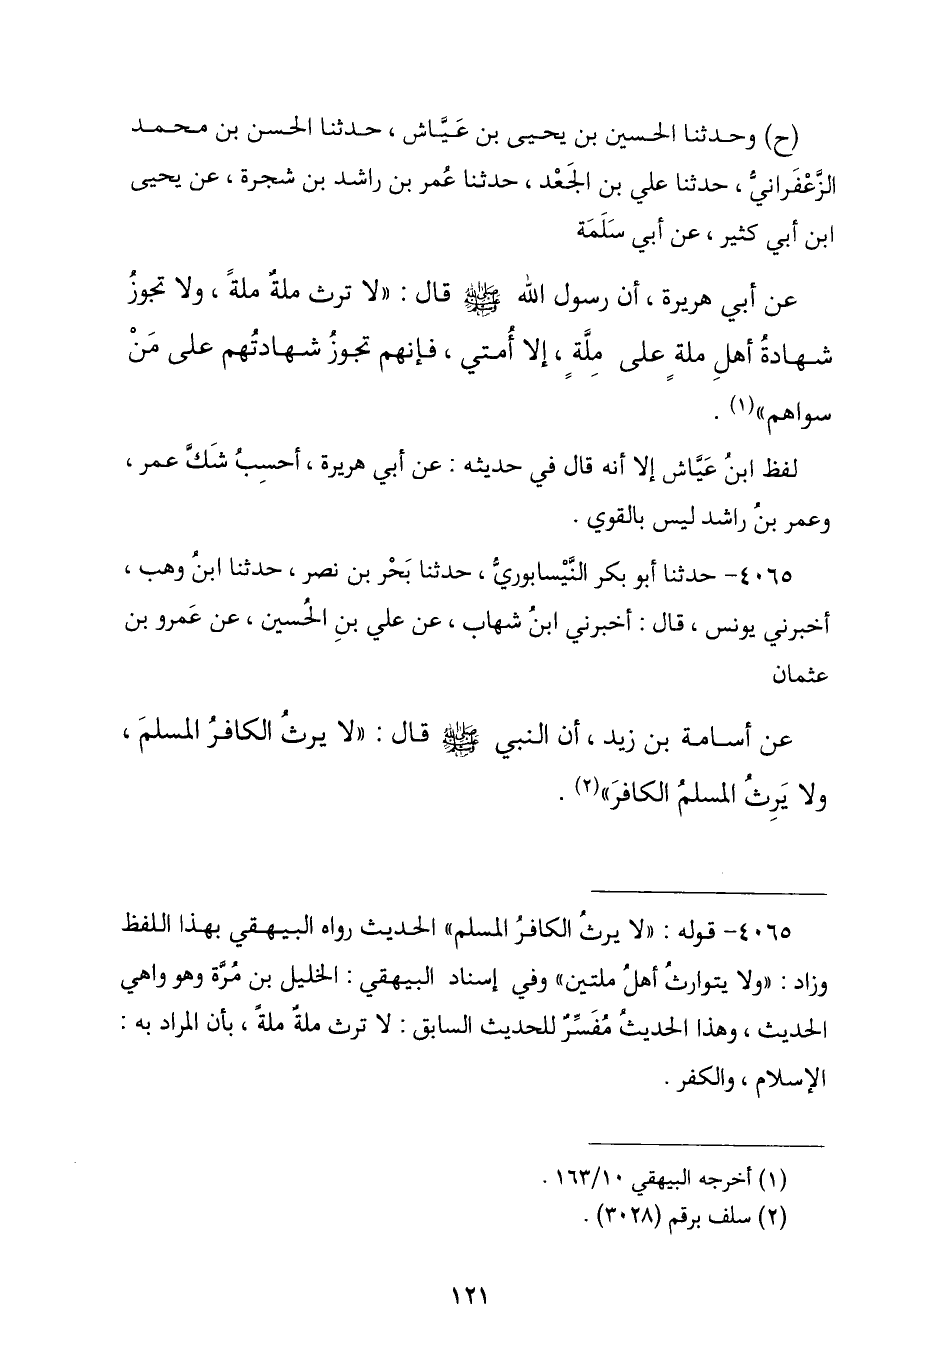 (ح) وحدثنا الحسين بن يحيى بن عَيَّاش ، حدثنا الحسن بن محمد
الزَّعْفَرانيُّ ، حدثنا علي بن الجَعْد ، حدثنا عُمر بن راشد بن شجرة ، عن يحيى
ابن أبي كثير ، عن أبي سَلَمَة
عن أبي هريرة ، أن رسول الله ﷺ قال : «لا ترث ملةٌ ملةً ، ولا تجوزُ
شهادةُ أهلِ ملةٍ على مِلَّةٍ ، إلا أُمتي ، فإنهم تجوزُ شهادتُهم على مَنْ
سواهم»(١) .
لفظ ابنُ عَيَّاش إلا أنه قال في حديثه : عن أبي هريرة ، أحسِبُ شَكَّ عمر ،
وعمر بنُ راشد ليس بالقوي .
٤٠٦٥- حدثنا أبو بكر النَّيْسابوريُّ ، حدثنا بَحْر بن نصر ، حدثنا ابنُ وهب ،
أخبرني يونس ، قال : أخبرني ابنُ شهاب ، عن علي بنِ الحُسين ، عن عَمرو بن
عثمان
عن أسامة بن زيد ، أن النبي ﷺ قال : «لا يرثُ الكافرُ المسلمَ ،
ولا يَرِثُ المسلمُ الكافرَ»(٢) .
٤٠٦٥- قوله : «لا يرثُ الكافرُ المسلم» الحديث رواه البيهقي بهذا اللفظ
وزاد : «ولا يتوارثُ أهلُ ملتين» وفي إسناد البيهقي : الخليل بن مُرَّة وهو واهي
الحديث ، وهذا الحديثُ مُفَسِّرٌ للحديث السابق : لا ترث ملةٌ ملةً ، بأن المراد به :
الإسلام ، والكفر .
(١) أخرجه البيهقي ١٦٣/١٠ .
(٢) سلف برقم (٣٠٢٨) .
١٢١